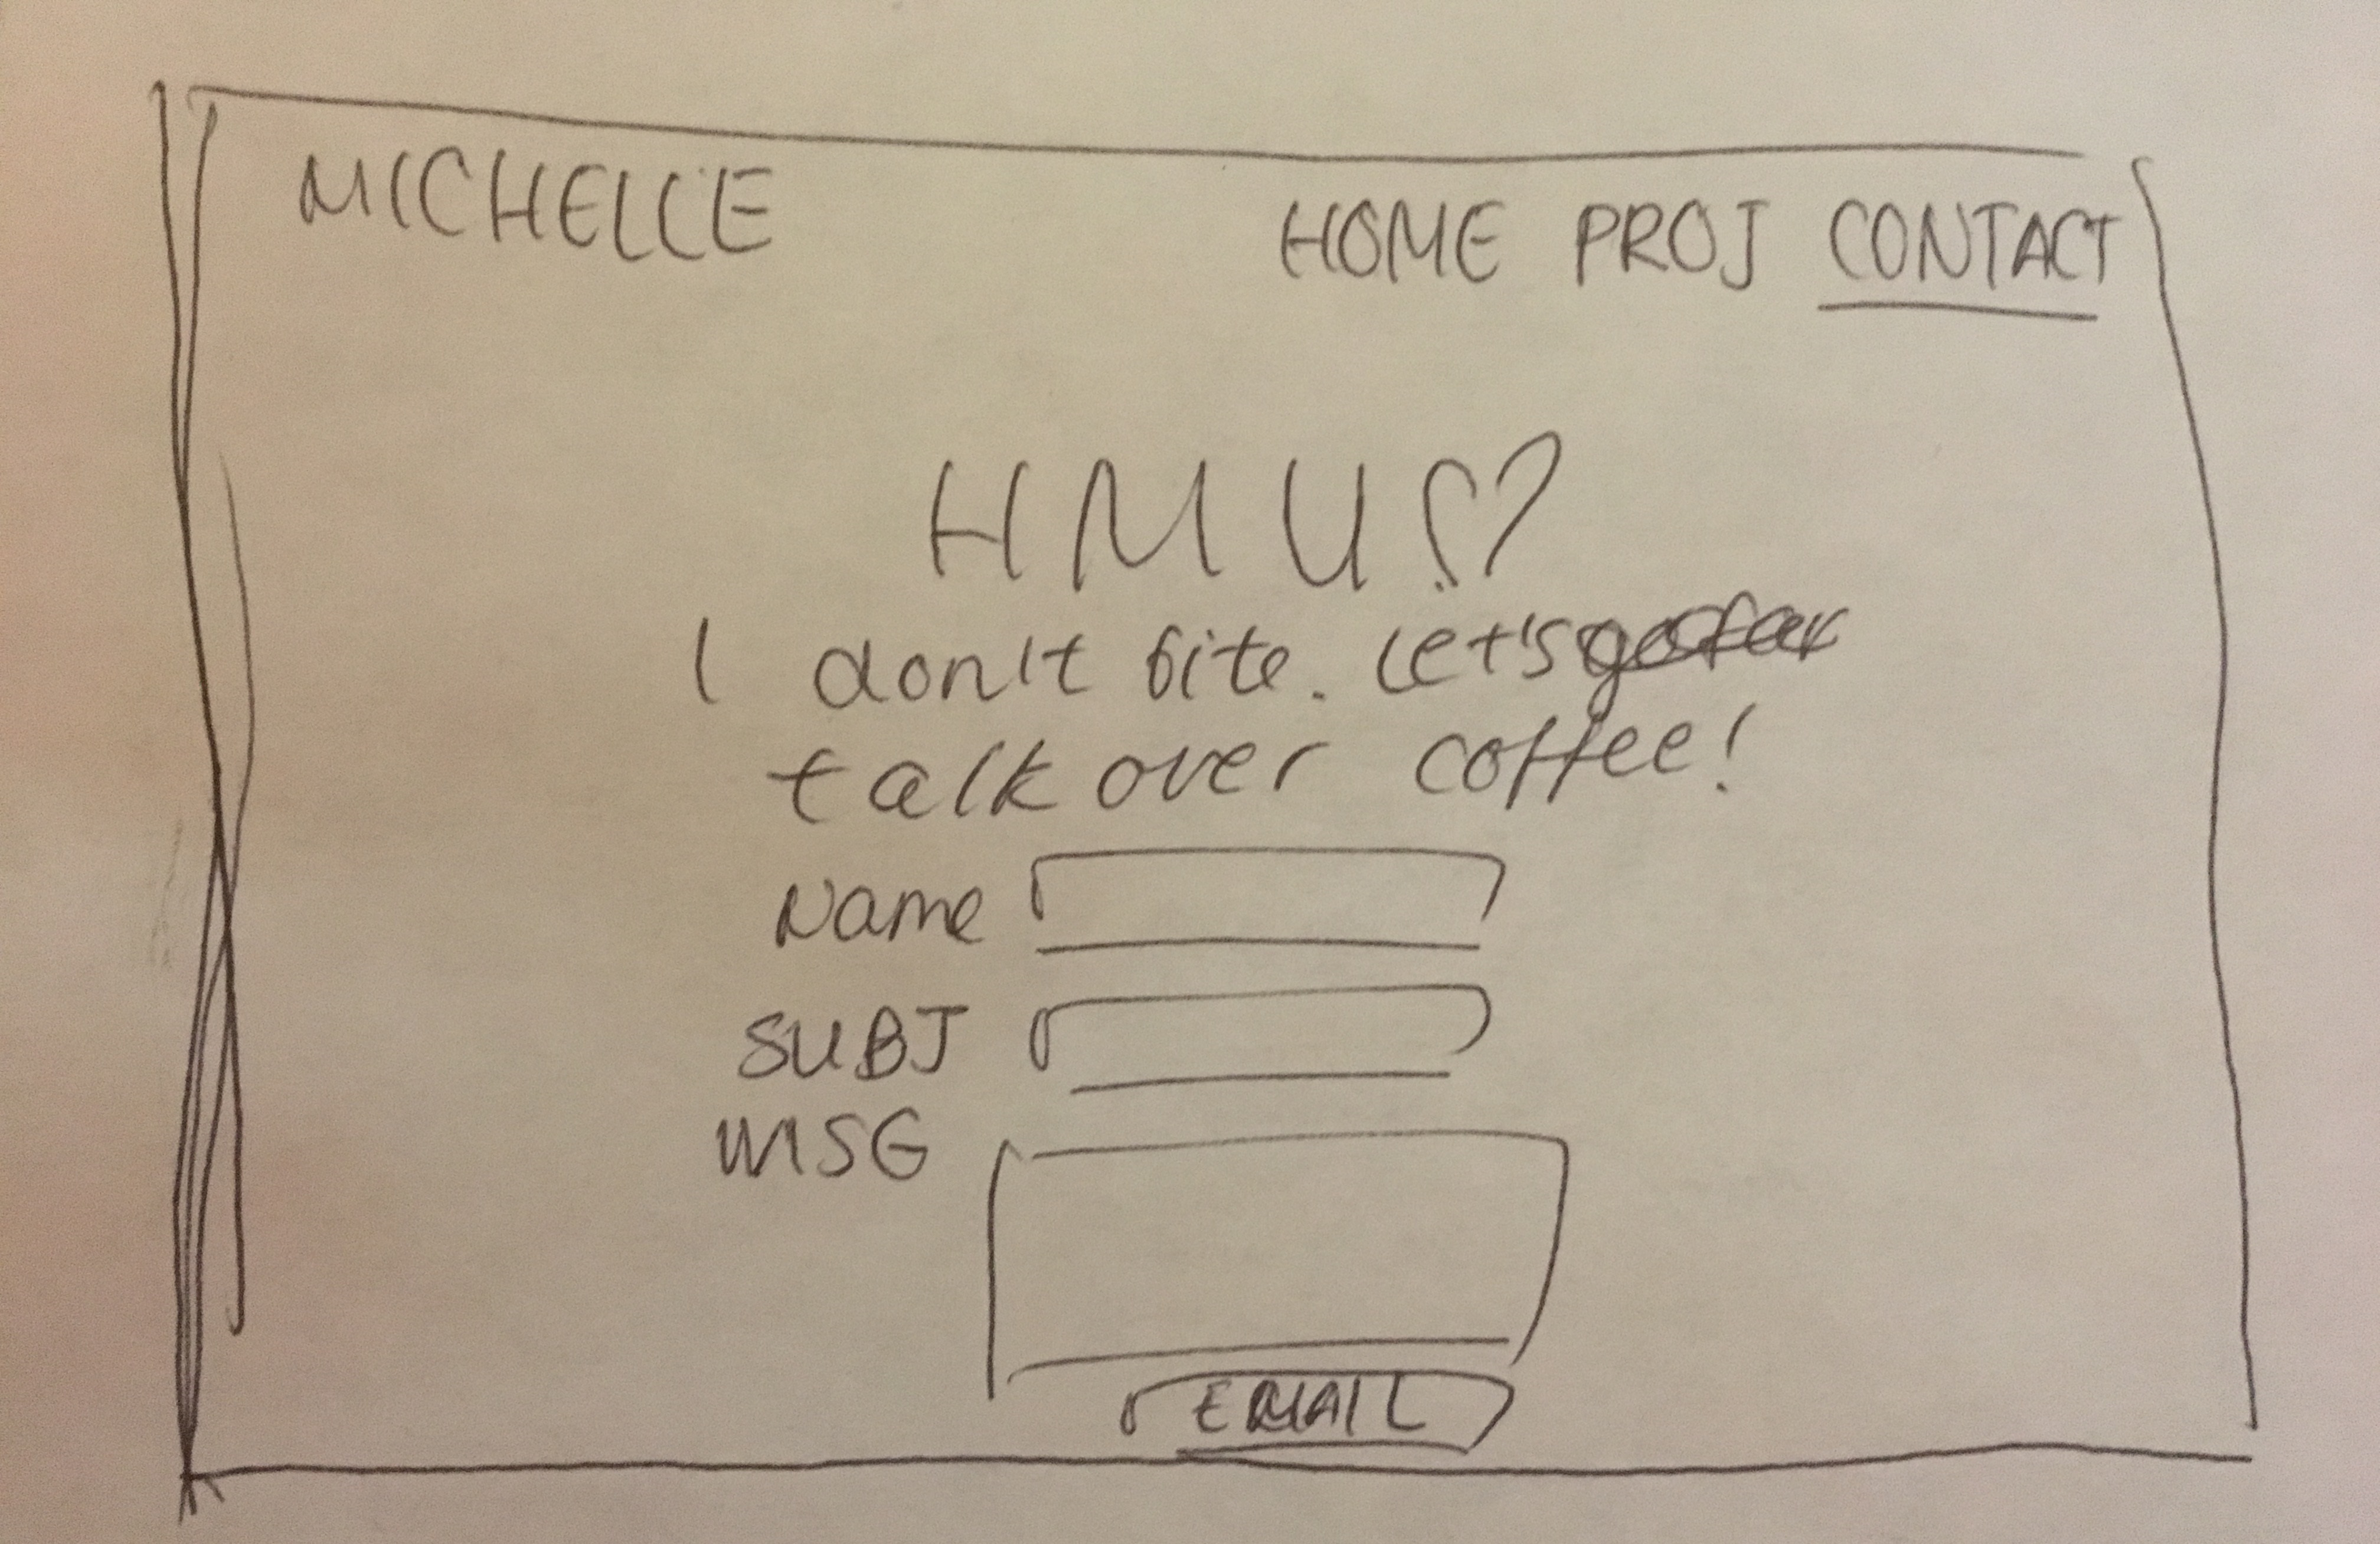 MICHELLE HOME PROJ CONTACT
HMU
I don't bite. Let's
talk over coffee!
Name
SUBJ
MSG
EMAIL